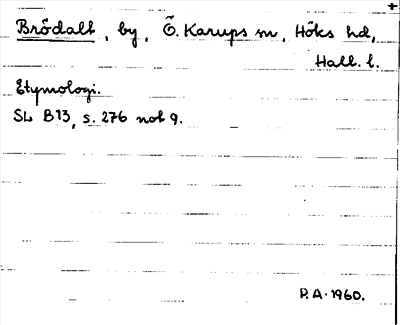 Brödalt, by, Ö. Karups sn, Höks hd,
Hall. l.
Etymologi.
SL B13, s. 276 not 9.
P.A. 1960.